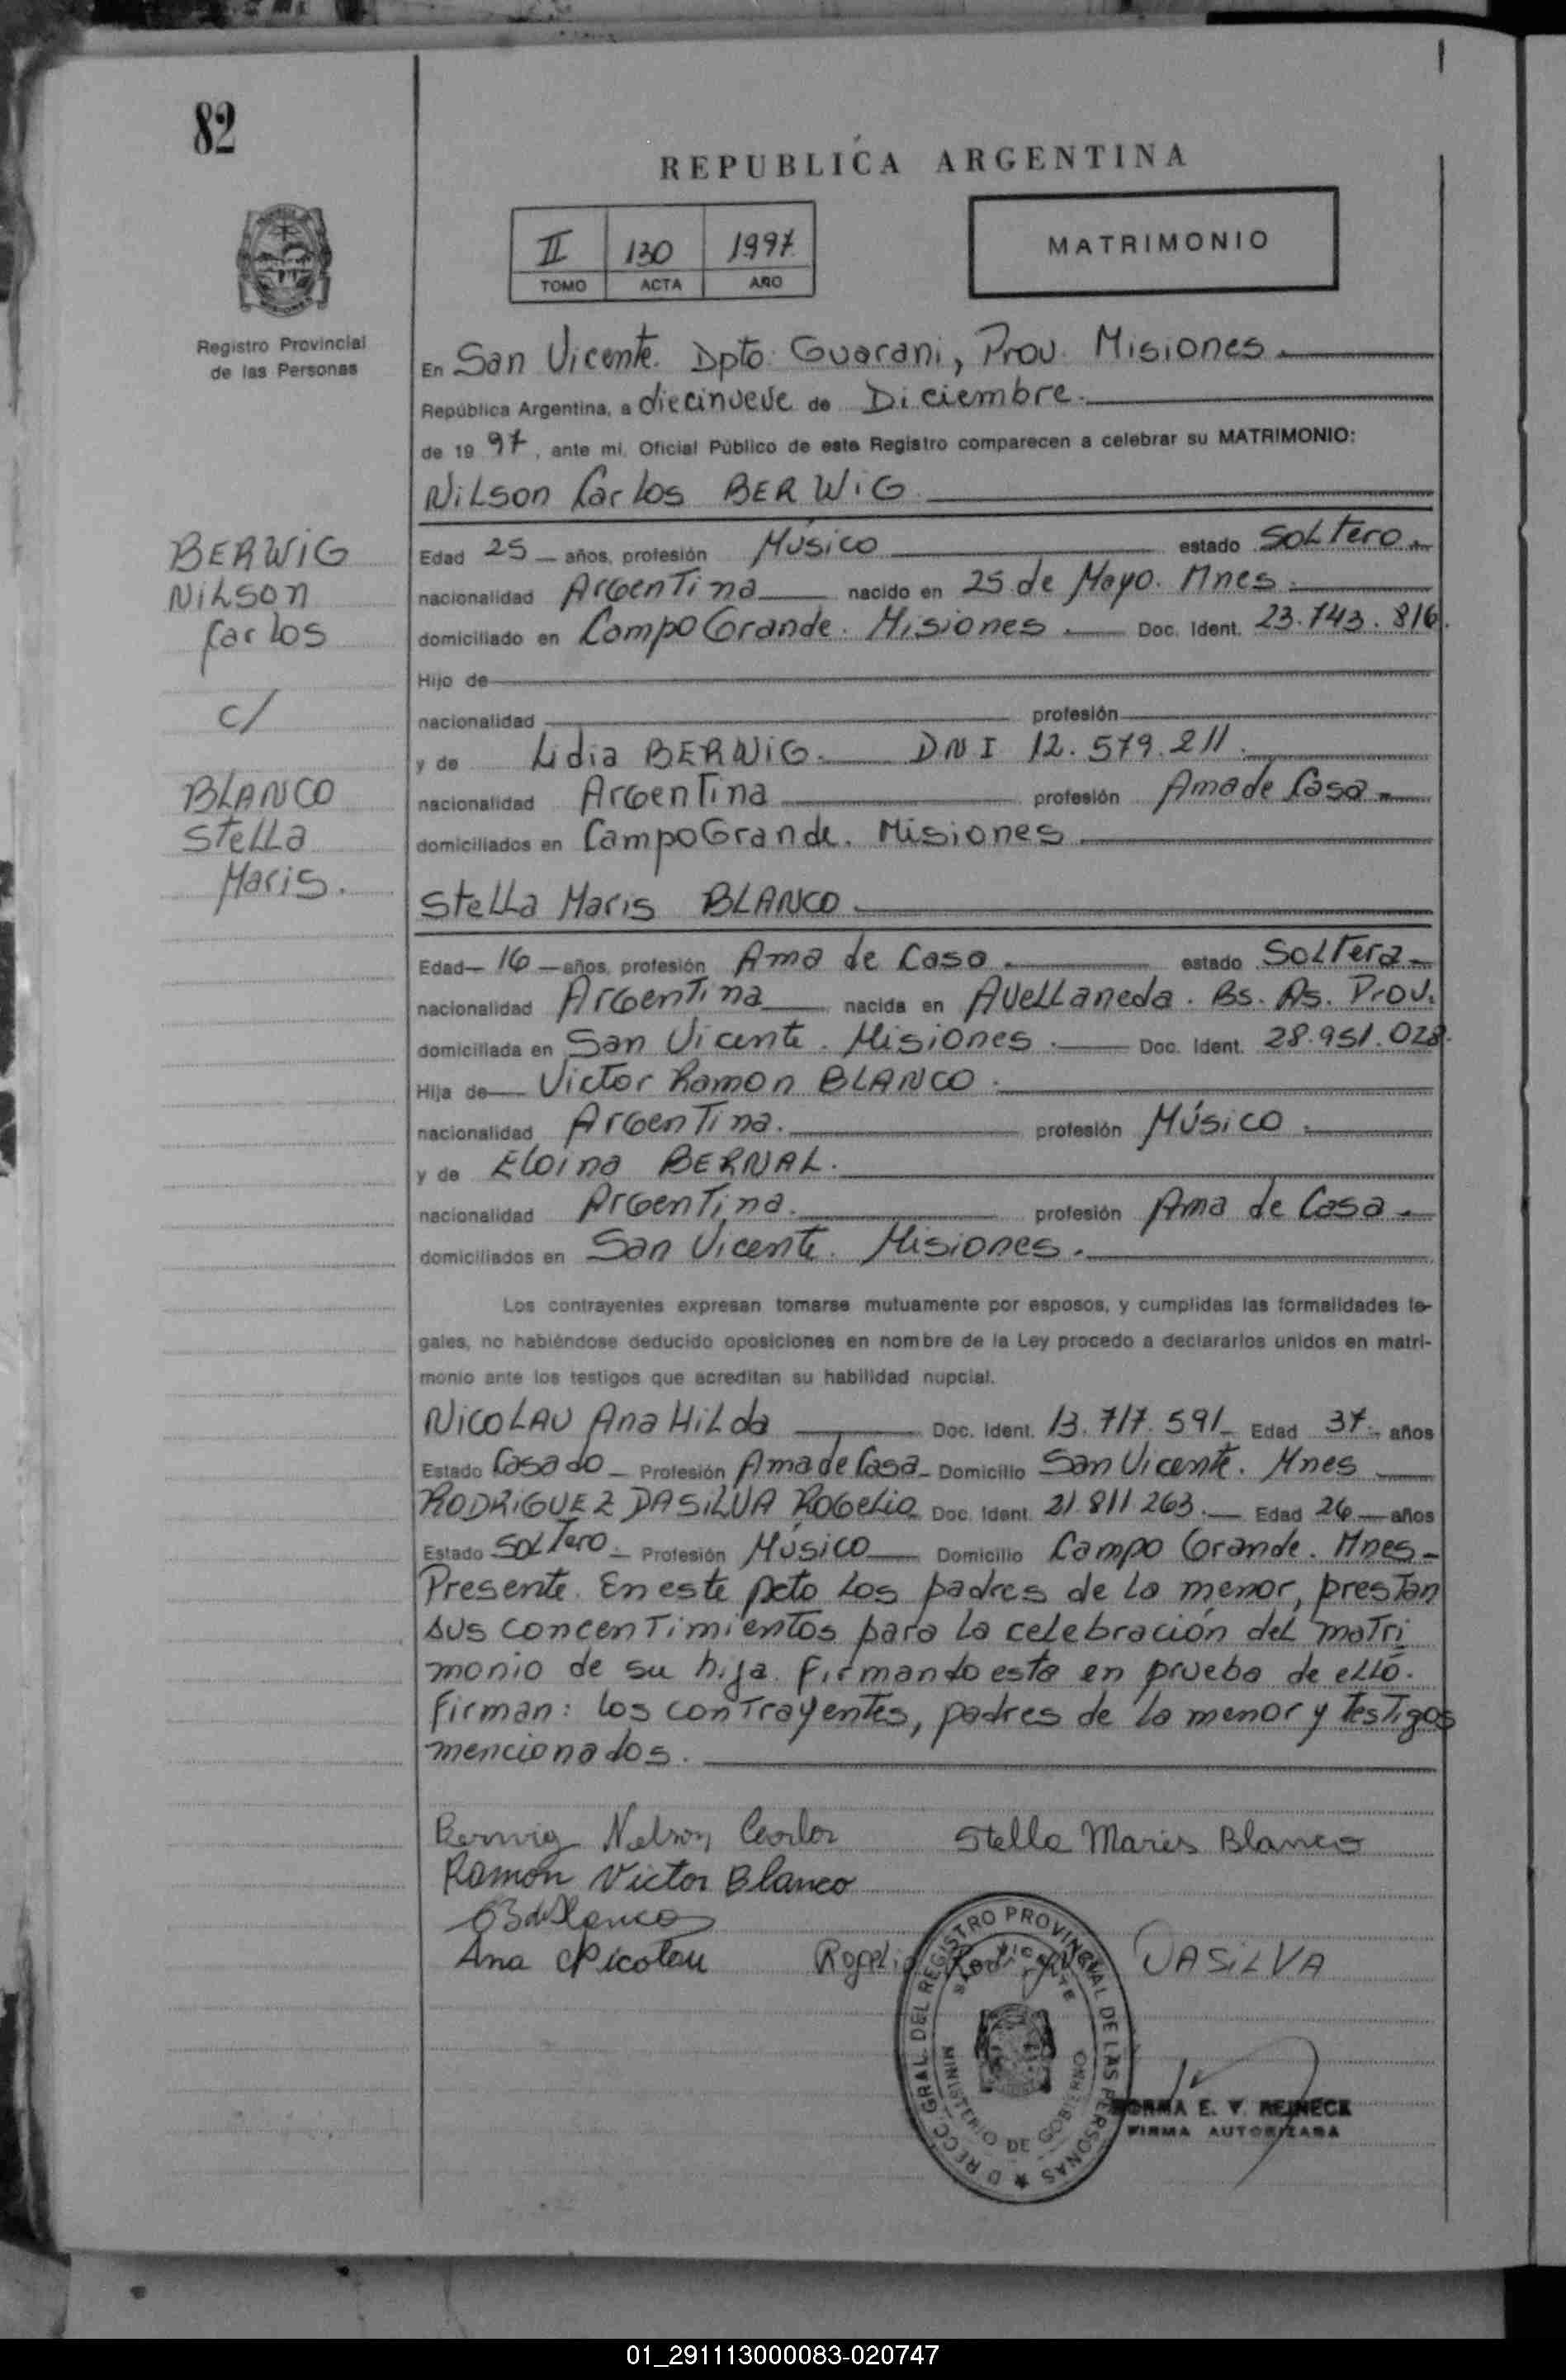 82
REPUBLICA ARGENTINA
II 130 1997
TOMO ACTA AÑO
MATRIMONIO
Registro Provincial
de las Personas
En San Vicente. Dpto. Guarani, Prov. Misiones.
República Argentina, a diecinueve de Diciembre.
de 19 97, ante mi, Oficial Público de este Registro comparecen a celebrar su MATRIMONIO:
Nilson Carlos BERWIG
BERWIG
Nilson
Carlos
c/
BLANCO
Stella
Maris.
Edad 25 años, profesión Músico estado Soltero.
nacionalidad Argentina nacido en 25 de Mayo. Mnes.
domiciliado en Campo Grande. Misiones. Doc. Ident. 23.743.816.
Hijo de
nacionalidad profesión
y de Lidia BERWIG. DNI 12.579.211.
nacionalidad Argentina profesión Ama de Casa.
domiciliados en Campo Grande. Misiones
Stella Maris BLANCO.
Edad 16 años, profesión Ama de Casa. estado Soltera
nacionalidad Argentina nacida en Avellaneda. Bs. As. Prov.
domiciliada en San Vicente. Misiones. Doc. Ident. 28.951.028.
Hija de Victor Ramon BLANCO.
nacionalidad Argentina. profesión Músico.
y de Eloina BERNAL.
nacionalidad Argentina. profesión Ama de Casa.
domiciliados en San Vicente. Misiones.
Los contrayentes expresan tomarse mutuamente por esposos, y cumplidas las formalidades le-
gales, no habiéndose deducido oposiciones en nombre de la Ley procedo a declararlos unidos en matri-
monio ante los testigos que acreditan su habilidad nupcial.
NICOLAU Ana Hilda Doc. Ident. 13.717.591 Edad 37 años
Estado Casado Profesión Ama de Casa Domicilio San Vicente. Mnes
RODRIGUEZ DASILVA Rogelio Doc. Ident. 21.811.263. Edad 26 años
Estado Soltero. Profesión Músico Domicilio Campo Grande. Mnes
Presente. En este Acto los padres de la menor, prestan
sus concentimientos para la celebración del matri
monio de su hija. Firmando esta en prueba de ello.
Firman: los contrayentes, padres de la menor y testigos
mencionados.
Berwig Nelson Carlos Stella Maris Blanco
Ramón Victor Blanco
Ana Nicolau Rogelio DASILVA
DRECC. GRAL. DEL REGISTRO PROVINCIAL DE LAS PERSONAS
SAN VICENTE
MINISTERIO DE GOBIERNO
NORMA E. V. REINECK
FIRMA AUTORIZADA
01_291113000083-020747